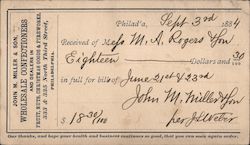 JOHN M. MILLER & SON,
WHOLESALE CONFECTIONERS
AND DEALERS IN
FRUIT, NUTS, CHRISTMAS GOODS & FIREWORKS,
333 & 335 North Third Street,
PHILADELPHIA.
Philad'a, Sept 3rd 1884
Received of Mess M. A. Rogers & Son
Eighteen Dollars and 30/100
in full for bill of June 21st & 23rd
John M. Miller & Son
$18 30/100 per
Our thanks, and hope your health and business continues so good, that you can soon again order.